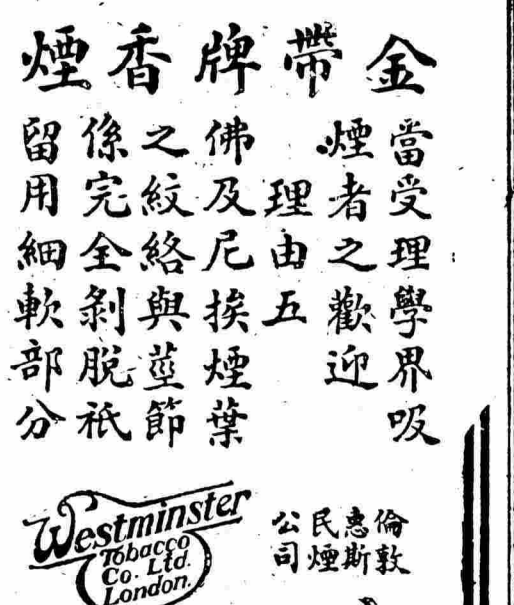 金帶牌香煙
當受理學界吸
煙者之歡迎
理由五
佛及尼挨煙葉
之紋絡與莖節
係完全剝脫祇
留用細軟部分
倫敦
惠斯
民煙
公司
Westminster
Tobacco
Co. Ltd.
London.